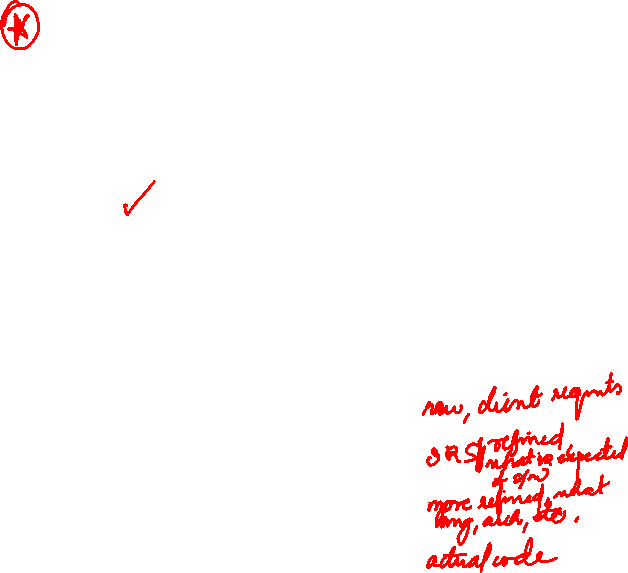 raw, client reqmts
SRS, refined,
what is expected
of s/w
more refined, what
lang, arch, etc.
actual code